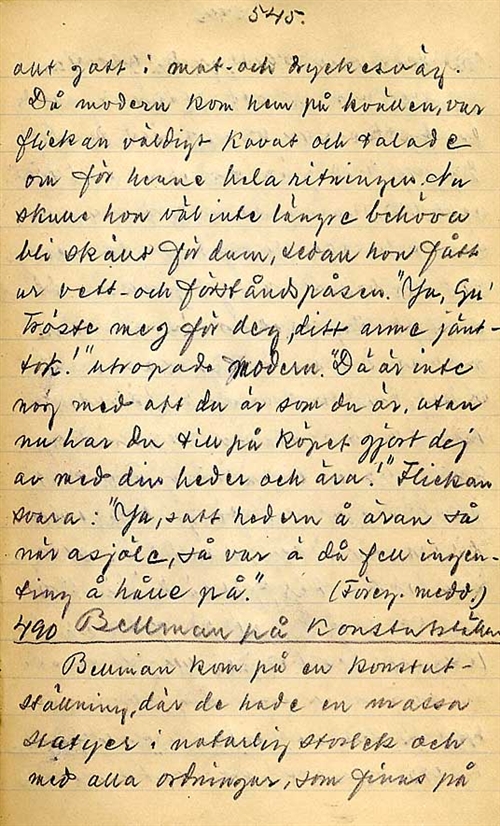 545.
allt gott i mat- och dryckesväg.
Då modern kom hem på kvällen, var
flickan väldigt kavat och talade
om för henne hela ritningen. Nu
skulle hon väl inte längre behöva
bli skälld för dum, sedan hon fått
ur vett- och förståndspåsen. "Ja, Gu'
tröste meg för deg, ditt arme jänt-
tok!" utropade modern. "Dä är inte
nög med att du är som du är, utan
nu har du till på köpet gjort dej
av med din heder och ära!" Flickan
svara: "Ja, satt hedern å äran så
när asjöle, så var å då fell ingen-
ting å hålle på."   (Föreg. medd.)
490 Bellman på Konstutställn
Bellman kom på en konstut-
ställning, där de hade en massa
statyer i naturlig storlek och
med alla ordningar, som finns på